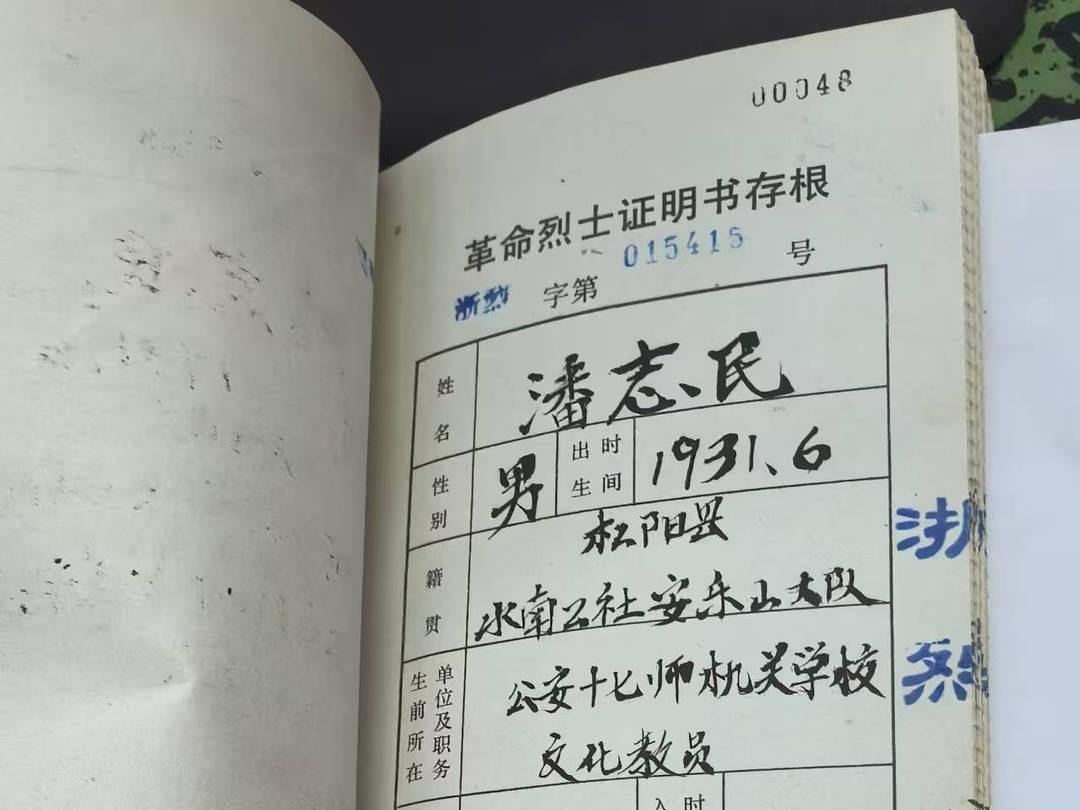 00048
革命烈士证明书存根
浙烈 字第 015415 号
姓名 潘志民
性别 男 出生时间 1931.6
籍贯 松阳县
水南公社安乐山大队
生前所在单位及职务 公安十七师机关学校
文化教员
入 时
浙